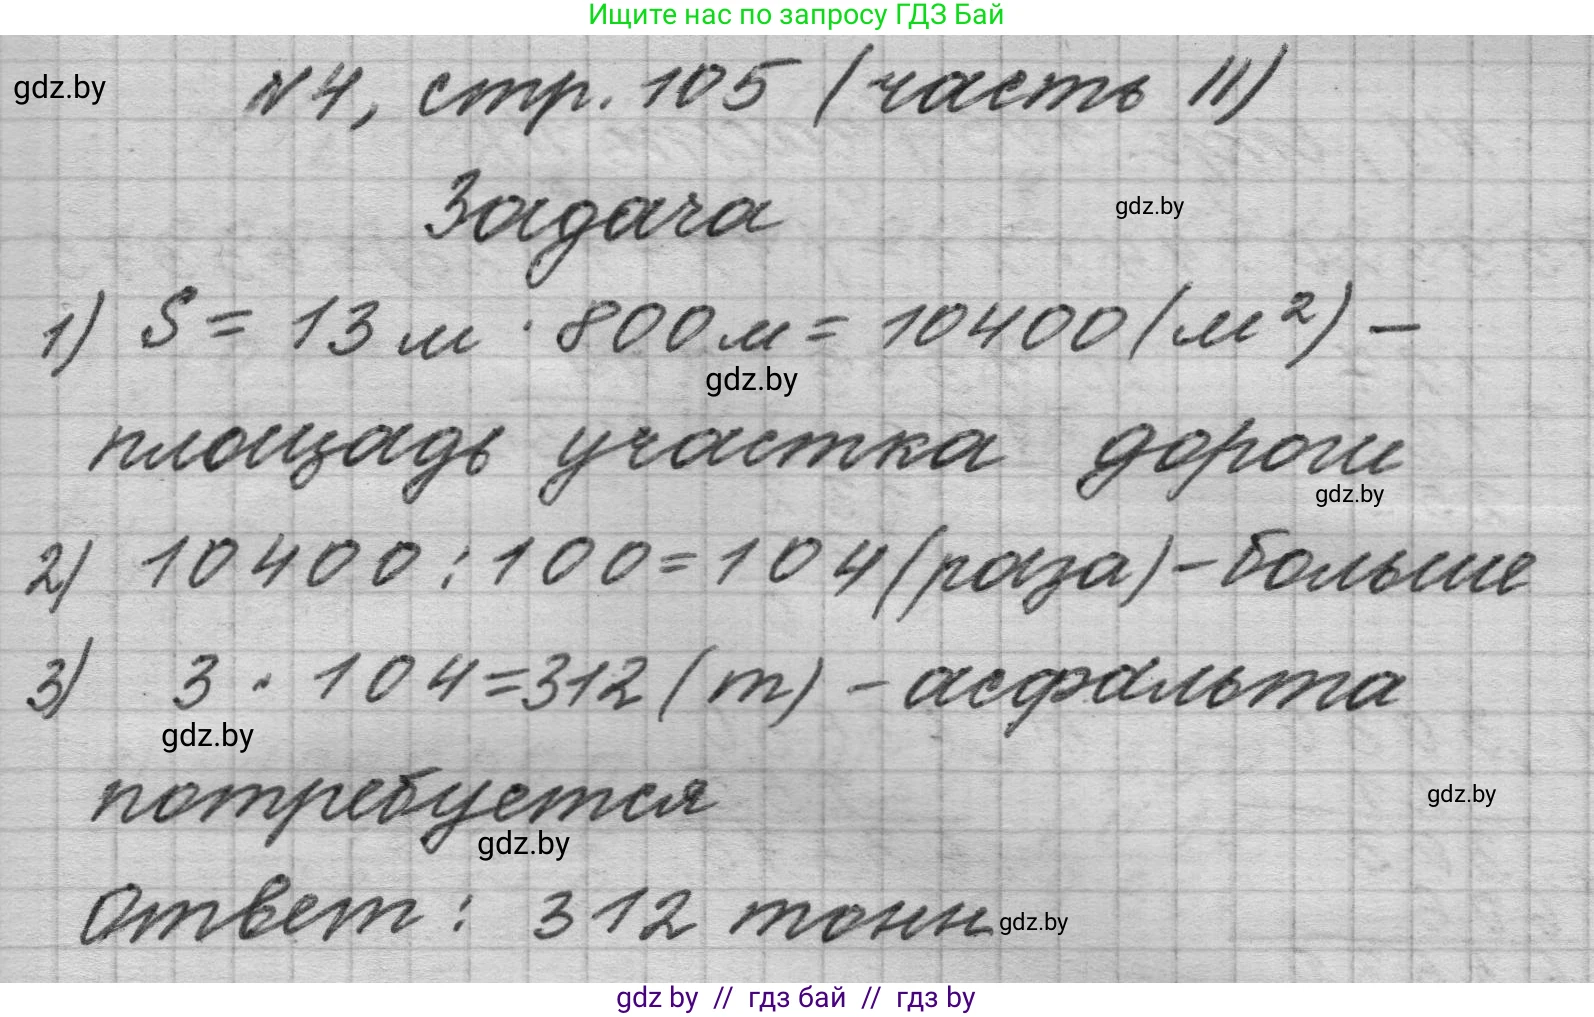 Ищите нас по запросу ГДЗ Бай
gdz.by
№4, стр. 105 (часть II)
Задача
gdz.by
1) S = 13 м · 800 м = 10400 (м²) –
gdz.by
площадь участка дороги
gdz.by
2) 10400 : 100 = 104 (раза) – больше
3) 3 · 104 = 312 (т) – асфальта
gdz.by
потребуется
gdz.by
gdz.by
Ответ: 312 тонн
gdz.by
gdz by // гдз бай // гдз by